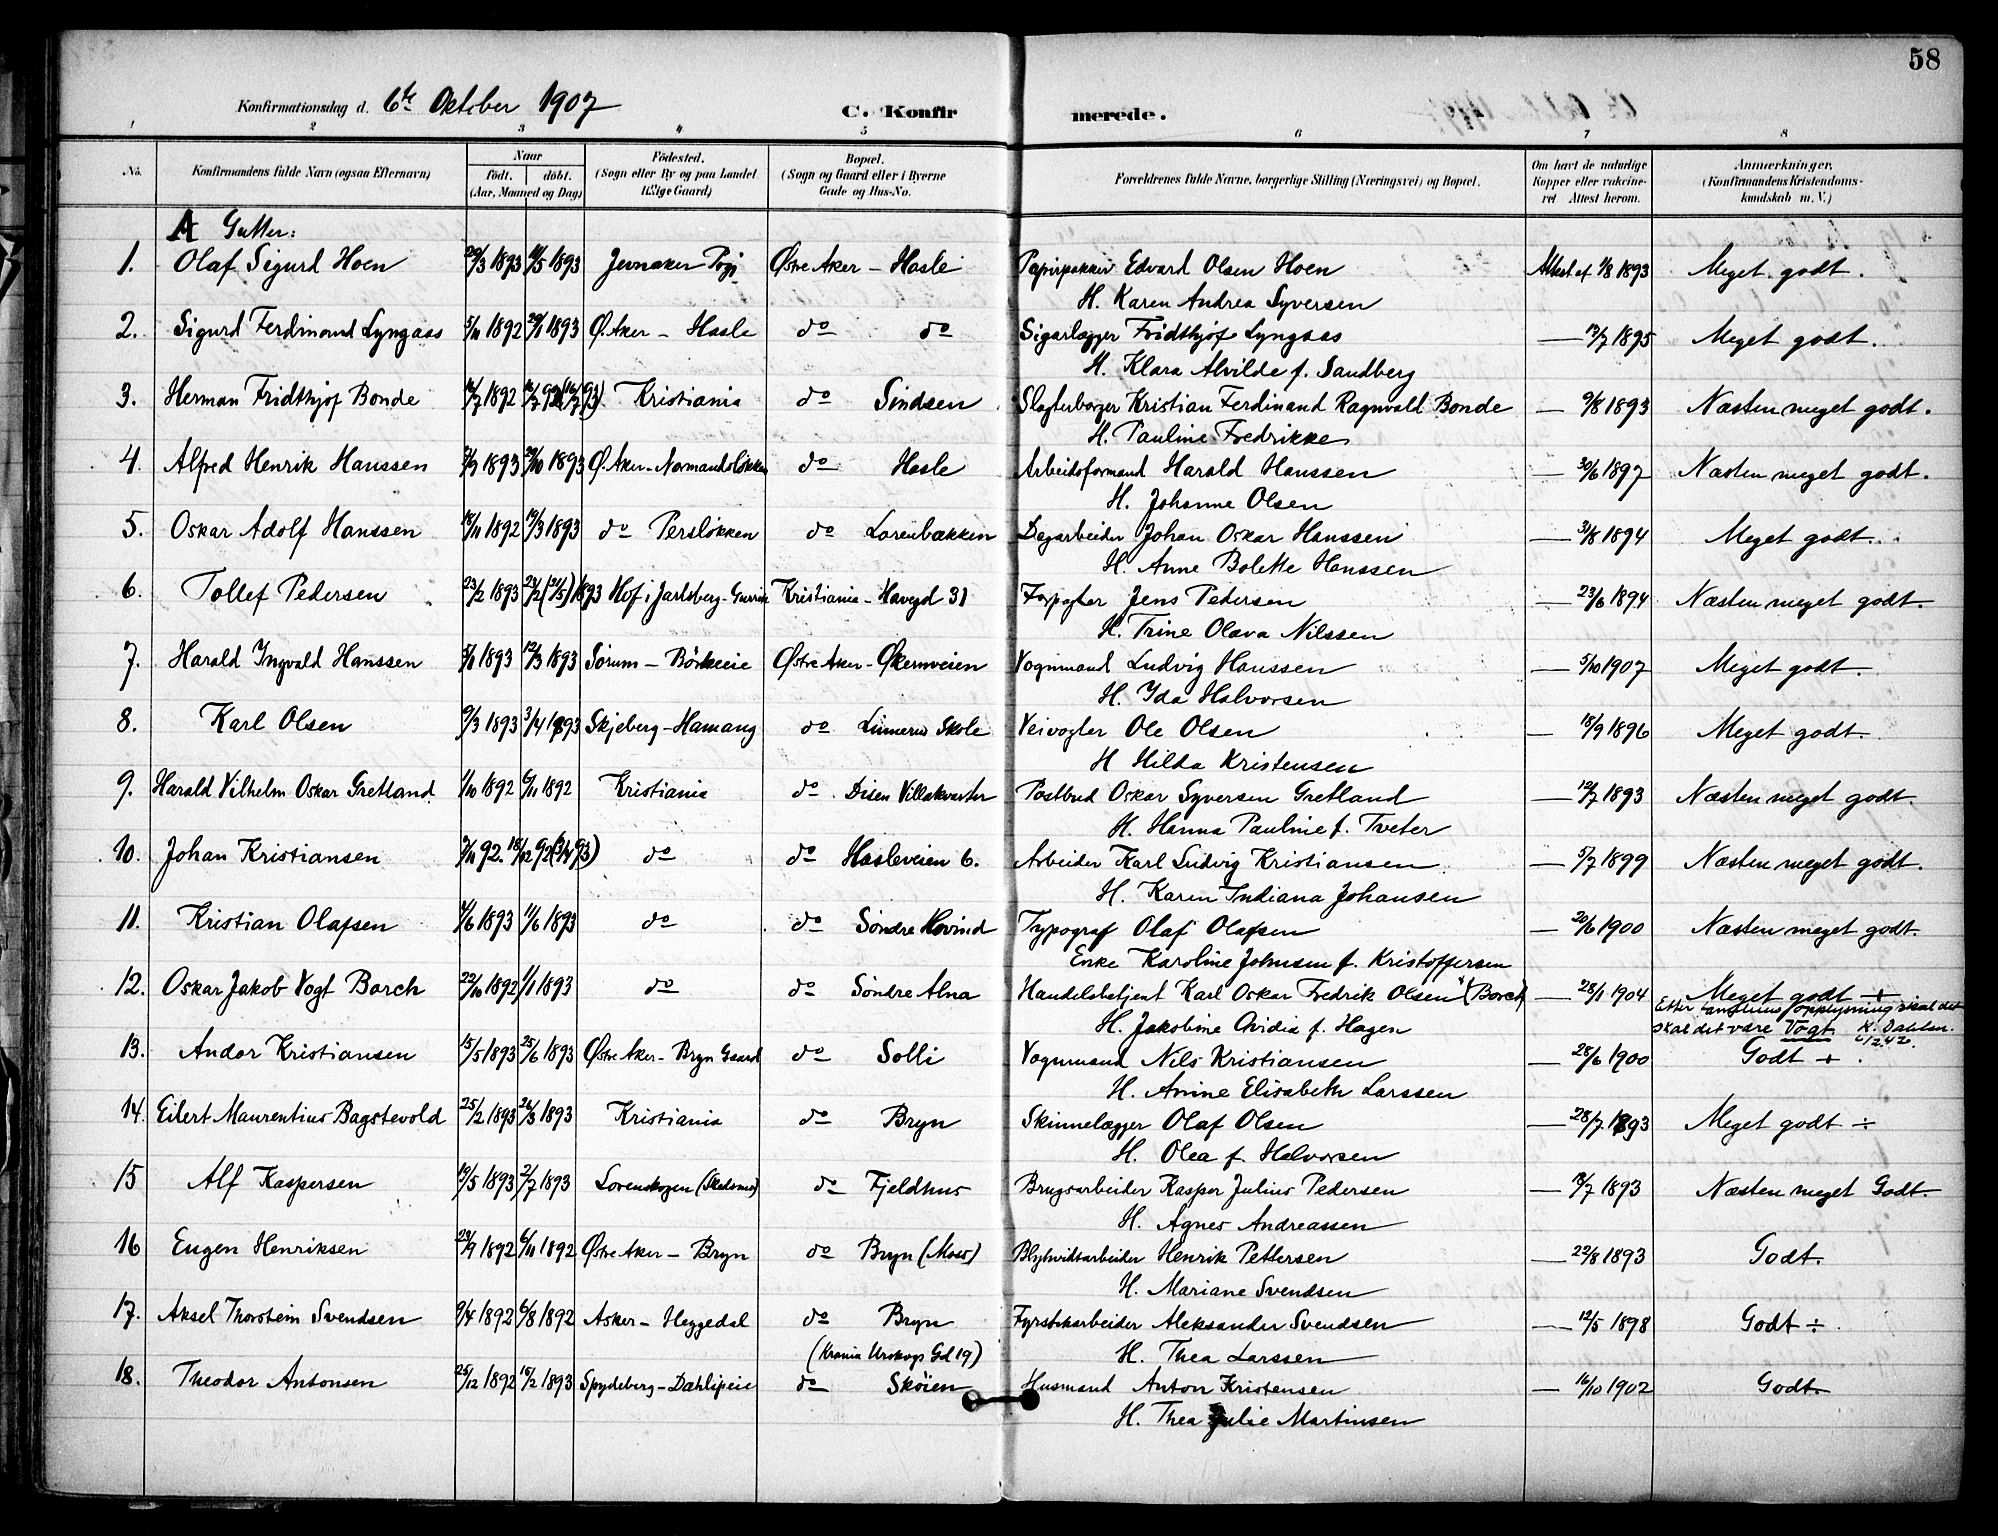 58
Konfirmationsdag d. 6te October 1907 C. Konfirmerede.
1 2 3 4 5 6 7 8
No. Konfirmandens fulde Navn (ogsaa Efternavn) Naar født. døbt. (Aar, Maaned og Dag) Fødested. (Sogn eller By og paa Landet tillige Gaard) Bopæl. (Sogn og Gaard eller i Byerne Gade og Hus-No. Forældrenes fulde Navne, borgerlige Stilling (Næringsvei) og Bopæl. Om havt de naturlige Kopper eller vakcineret Attest herom. Anmærkninger, (Konfirmandens Kristendomskundskab m. V.)
A Gutter:
1. Olaf Sigurd Hoen 20/3 1893 /5 1893 Jevnaker Østre Aker - Hasle Papirpakker Edvard Olsen Hoen Attest af 1/8 1893 Meget godt.
H. Karen Andrea Syversen
2. Sigurd Ferdinand Lyngaas 5/11 1892 29/1 1893 Ø. Aker - Hasle do do Sigarlægger Fridthjof Lyngaas — 13/7 1895 Meget godt.
H. Klara Alvilde f. Sandberg
3. Herman Fridthjof Bonde /7 1892 Kristiania do Sindsen Slagterborger Kristian Ferdinand Ragnvald Bonde — 9/8 1893 Næsten meget godt.
H. Pauline Fredrikke
4. Alfred Henrik Hanssen /9 1893 29/10 1893 Ø. Aker - Normandsløkken do Hasle Arbeidsformand Harald Hanssen — 30/6 1897 Næsten meget godt.
H. Johanne Olsen
5. Oskar Adolf Hanssen 18/11 1892 19/3 1893 do Persløkken do Lørenbakken Dagarbeider Johan Oskar Hanssen — 31/8 1894 Meget godt.
H. Anne Bolette Hanssen
6. Tollef Pedersen 23/2 1893 23/2 (21/5) 1893 Hof i Jarlsberg - Kristiania - Havegd 31 Forpagter Jens Pedersen — 23/6 1894 Næsten meget godt.
H. Trine Olava Nilssen
7. Harald Ingvald Hanssen 5/1 1893 12/3 1893 Sørum - Børkeeie Østre Aker - Økernveien Vognmand Ludvig Hanssen — 5/10 1907 Meget godt.
H. Ida Halvorsen
8. Karl Olsen 9/3 1893 3/4 1893 Skjeberg - Hamang do Linnerud Skole Veivogter Ole Olsen — 18/9 1896 Meget godt.
H Hilda Kristensen
9. Harald Vilhelm Oskar Gretland 1/10 1892 6/11 1892 Kristiania do Disen Villakvarter Postbud Oskar Syversen Gretland — 12/7 1893 Næsten meget godt.
H. Hanna Pauline f. Tveter
10. Johan Kristiansen 7/11 92. 18/12 92 do do Hasleveien 6. Arbeider Karl Ludvig Kristiansen — 5/7 1899 Næsten meget godt.
H. Karen Indiana Johansen
11. Kristian Olafsen 4/6 1893 11/6 1893 do do Søndre Hovind Typograf Olaf Olafsen — 20/6 1900 Næsten meget godt.
Enke Karoline Johnsen f. Kristoffersen
12. Oskar Jakob Vogt Borch 22/10 1892 1/1 1893 do do Søndre Alna Handelsbetjent Karl Oskar Fredrik Olsen (Borch) — 28/1 1904 Meget godt +
H. Jakobine Ovidia f. Hagen Efter opplysning skal det
skal det være Vogt K. Dahlen.
13. Andor Kristiansen 15/5 1893 25/6 1893 Østre Aker - Bryn Gaard do Solli Vognmand Nils Kristiansen — 28/6 1900 Godt +
H. Anine Elisabeth Larssen
14. Eilert Maurentius Bagstevold 25/2 1893 26/3 1893 Kristiania do Bryn Skinnelægger Olaf Olsen — 28/7. 1893 Meget godt ÷
H. Olea f. Halvorsen
15 Alf Kaspersen 19/5 1893 2/7 1893 Lorenskogen (Skedsmo) do Fjeldhus Brugsarbeider Kasper Julius Pedersen — 18/7 1893 Næsten meget Godt.
H. Agnes Andreassen
16 Eugen Henriksen 23/9 1892 6/11 1892 Østre Aker - Bryn do Bryn (Moss) Blyhvidtarbeider Henrik Pettersen — 22/8 1893 Godt.
H. Mariane Svendsen
17. Aksel Thorstein Svendsen 9/4 1892 6/8 1892 Asker - Heggedal do Bryn Fyrstikarbeider Aleksander Svendsen — 12/5 1898 Godt ÷
(Krania Urskogs Gd 19) H. Thea Larssen
18. Theodor Antonsen 25/12 1892 15/2 1893 Spydeberg - Dæhlipeie do Skøien Husmand Anton Kristensen — 16/10 1902 Godt.
H. Thea Julie Martinsen